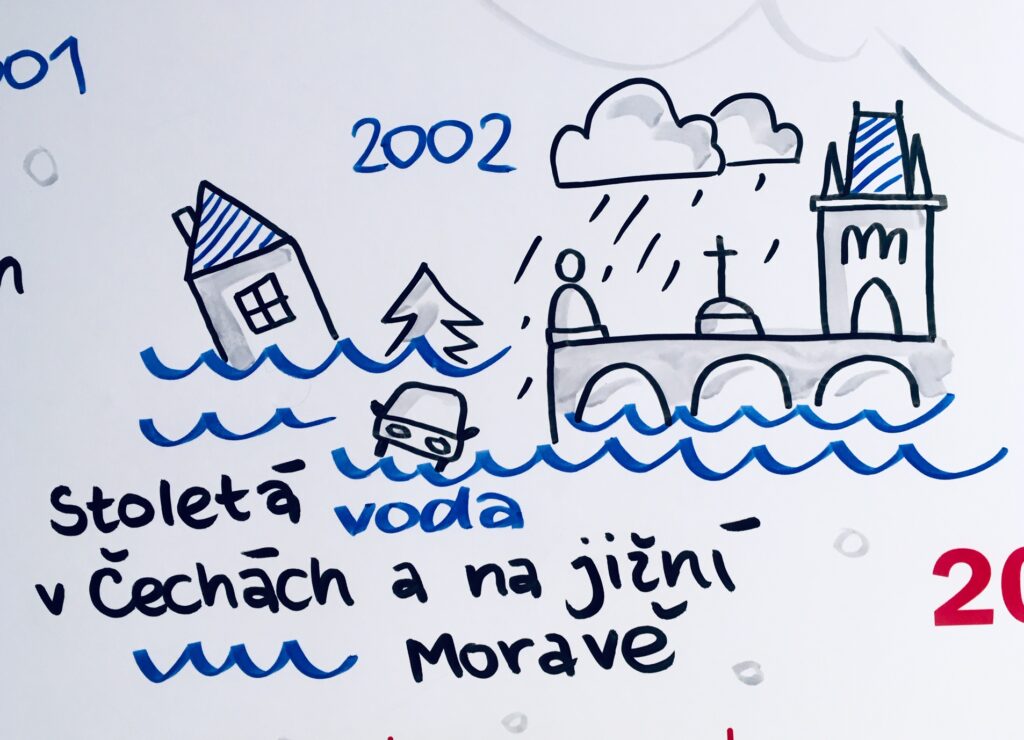 2002
Stoletá voda
v Čechách a na jižní
Moravě